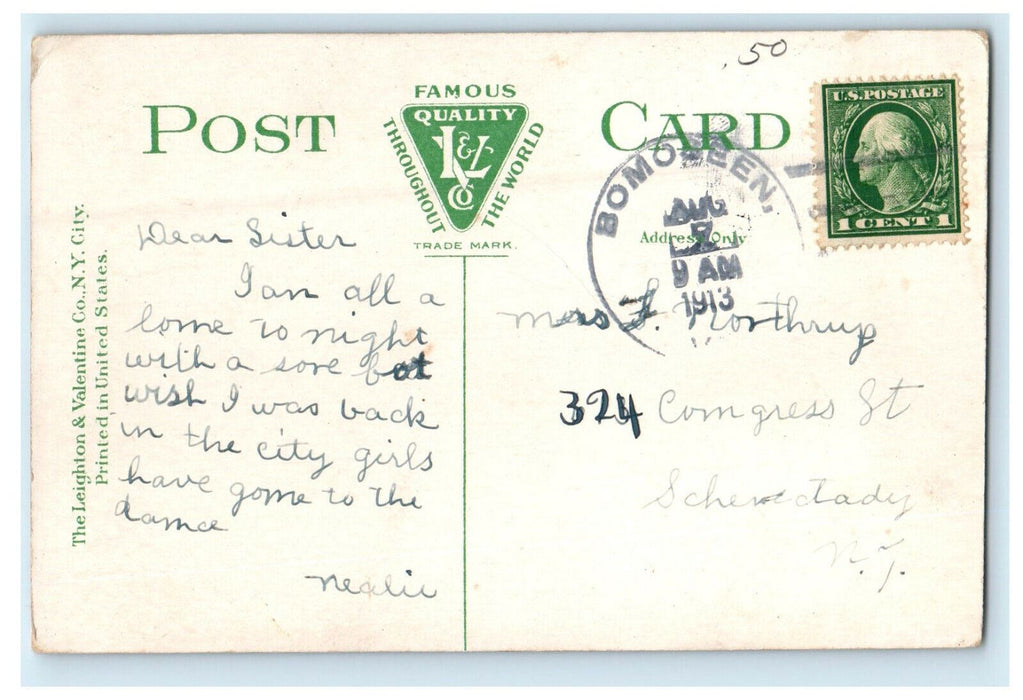 .50
POST CARD
FAMOUS
QUALITY
THROUGHOUT
THE WORLD
L & V
Co
TRADE MARK.
U.S. POSTAGE
1 CENT 1
BOMOSEEN,
AUG
9 AM
1913
Address Only
The Leighton & Valentine Co., N.Y. City.
Printed in United States.
Dear Sister
I am all a
lome to night
with a sore
wish I was back
in the city girls
have gone to the
dance
Nealie
Mrs F. Northrup
324 Comgress St
Schenectady
N.Y.